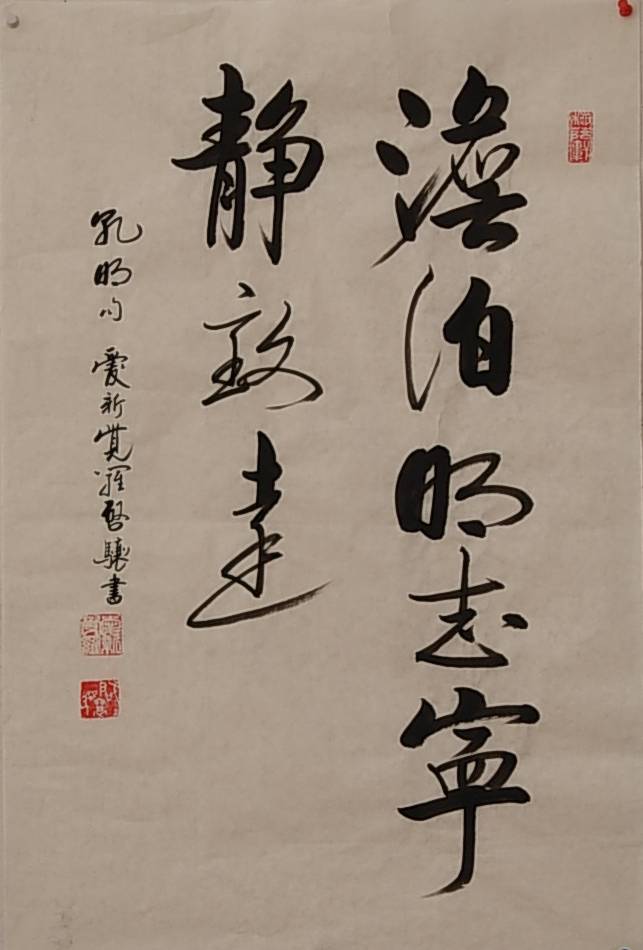 澹泊明志寧
静致遠
孔明句 愛新覺羅啓驤書